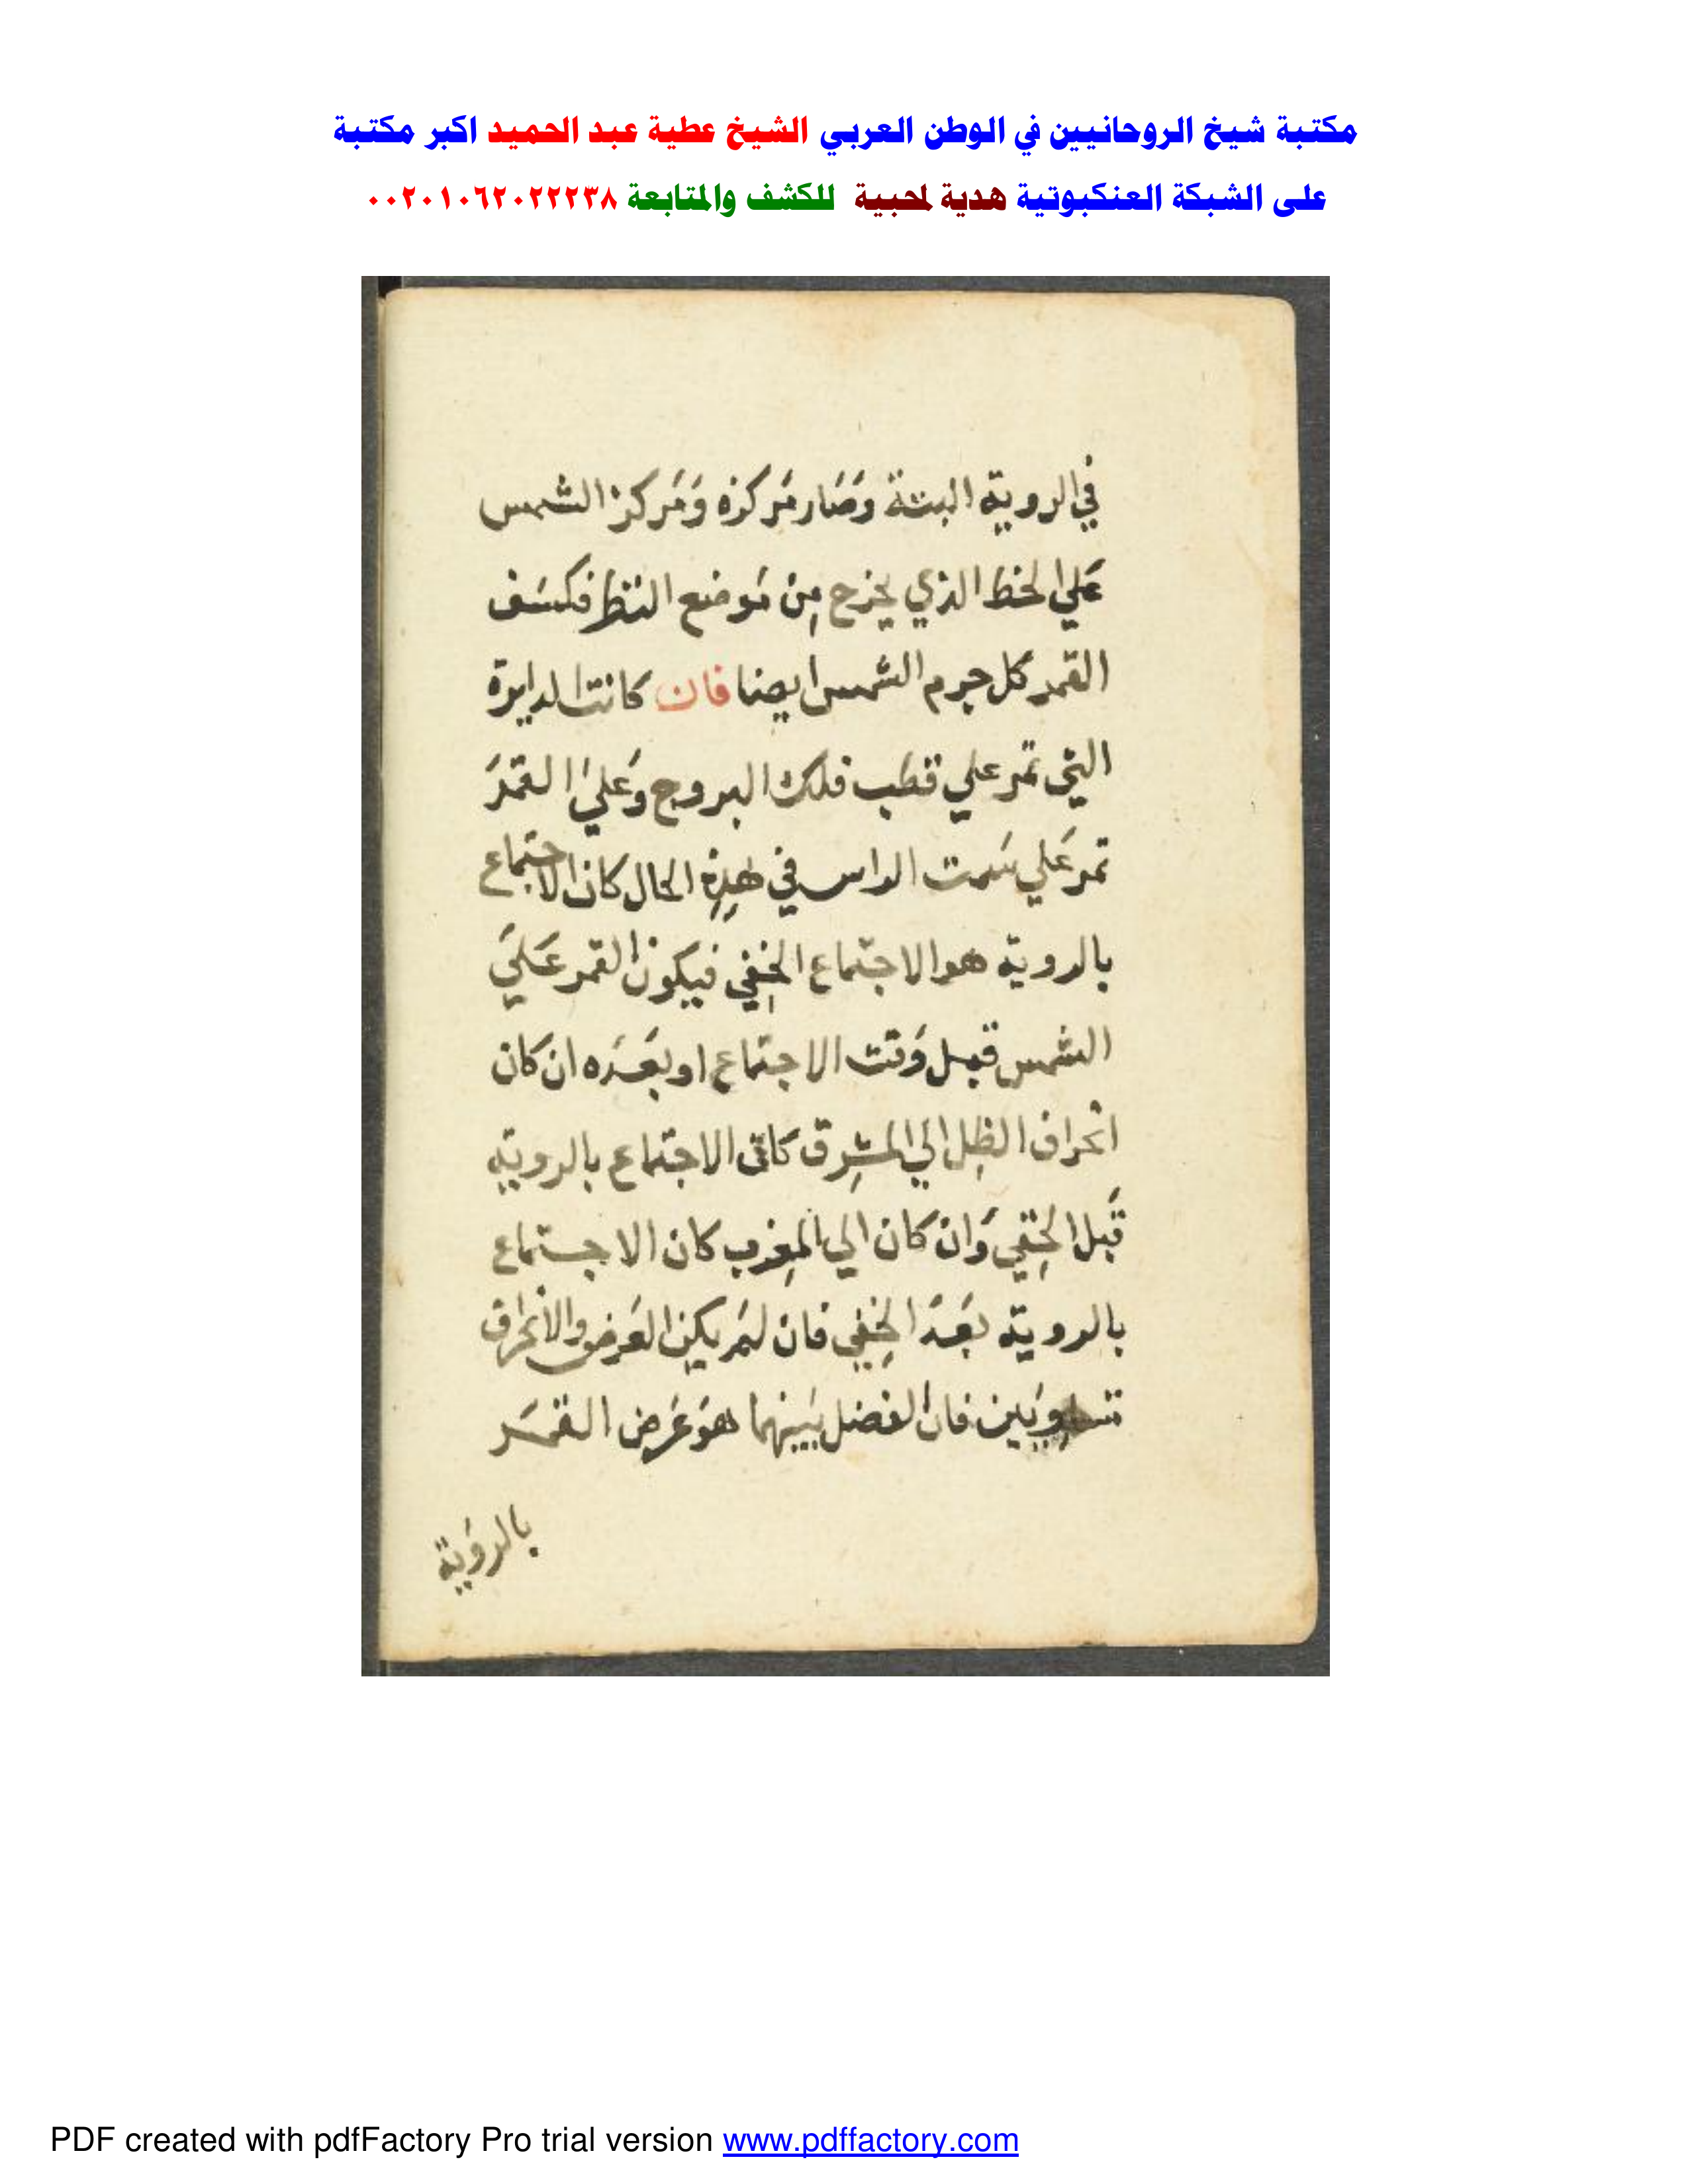 مكتبة شيخ الروحانيين في الوطن العربي الشيخ عطية عبد الحميد اكبر مكتبة
على الشبكة العنكبوتية هدية لمحبية للكشف والمتابعة ٠٠٢٠١٠٦٢٠٢٢٢٣٨
في الروية البتة وَصَار مَركزه وَمَركز الشمس
عَلي الخط الذي يخرج مِن مَوضع النظر فكسَف
القمر كل جرم الشمس ايضا فان كانت الدايرة
التي تمر علي قطب فلك البروج وَعَليَ القمَرَ
تمر عَلي سَمت الراس في هذِهِ الحال كان الاجتماع
بالروية هو الاجتماع الخِفي فيكون القمر عَليَ
الشمس قبل وَقت الاجتماع او بعَدَه ان كان
انحراف الظِل الي المشِرق كان الاجتماع بالروية
قَبل الخِفي وَان كان الي المغِرب كان الاجتماع
بالروية بَعدَ الخِفي فان لمَ يكن العَرض والانحراف
متساويين فان الفضل بَينهما هوَ عَرض القمَر
بالروَية
PDF created with pdfFactory Pro trial version www.pdffactory.com